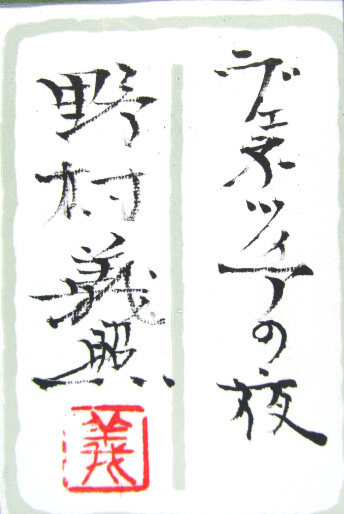 ヴェネツィアの夜
野村義照
義